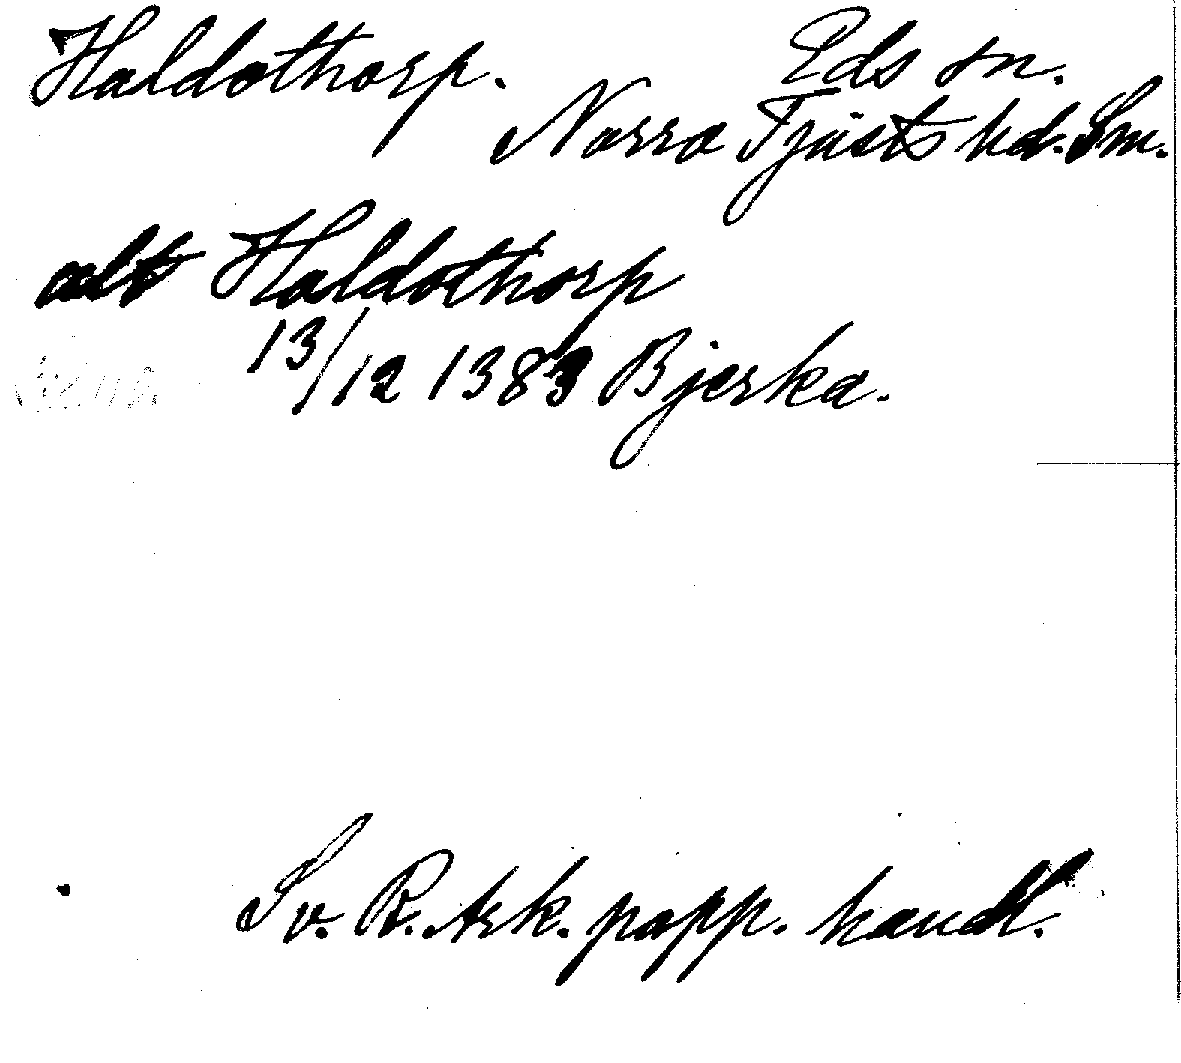 Haldothorp. Eds sn.
Norra Tjusts hd. Sm.
Haldothorp
13/12 1383 Bjerka.
Sv. R. Ark. papp. handl.